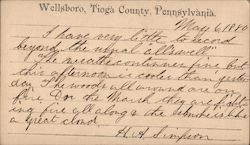 Wellsboro, Tioga County, Pennsylvania.
May 6, 1880
I have very little to record
beyond the usual "all well".
The weather continues fine but
this afternoon is cooler than yester
day. The woods all around are on
fire. On the March they are fight
ing fire all along the
a great cloud.
A. A. Simpson